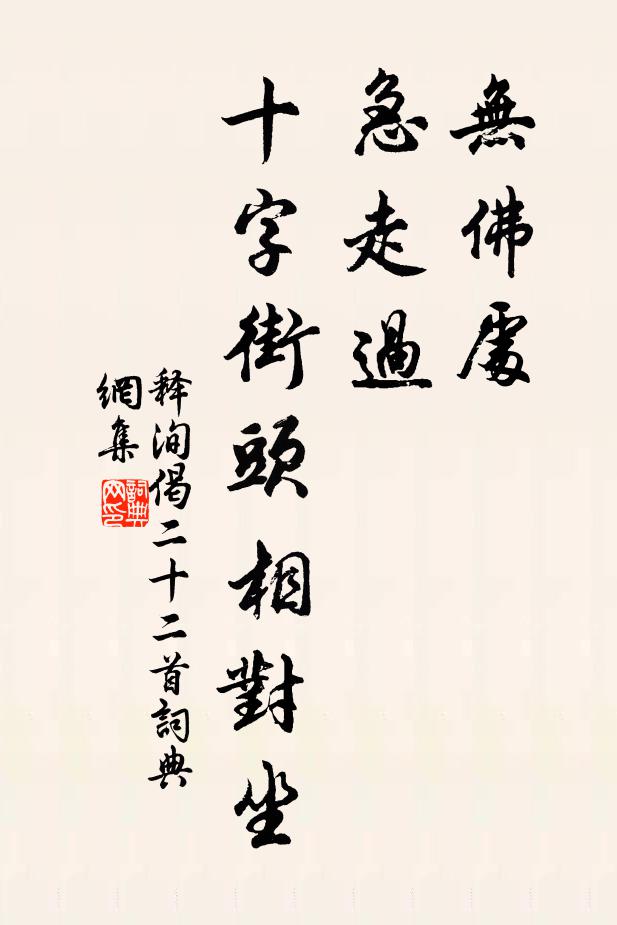 無佛處
急走過
十字街頭相對坐
释洵偈二十二首詞典
網集
詞典
网印